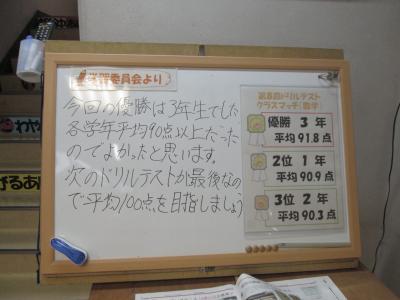 学習委員会より
今回の優勝は3年生でした。
各学年平均90点以上だった
のでよかったと思います。
次のドリルテストが最後なの
で平均100点を目指しましょう
ドリルテスト
クラスマッチ(数学)
優勝 3年
平均91.8点
2位 1年
平均90.9点
3位 2年
平均90.3点